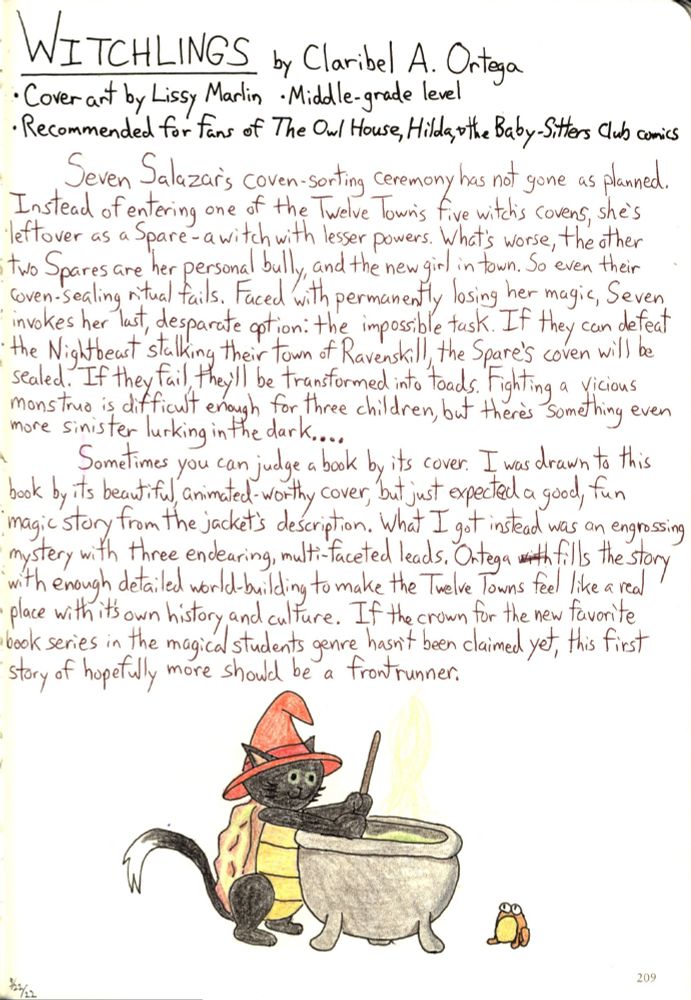 WITCHLINGS by Claribel A. Ortega
• Cover art by Lissy Marlin • Middle-grade level
• Recommended for fans of The Owl House, Hilda, & the Baby-Sitters Club comics
Seven Salazar's coven-sorting ceremony has not gone as planned.
Instead of entering one of the Twelve Town's five witch's covens, she's
leftover as a Spare - a witch with lesser powers. What's worse, the other
two Spares are her personal bully, and the new girl in town. So even their
coven-sealing ritual fails. Faced with permanently losing her magic, Seven
invokes her last, desparate option: the impossible task. If they can defeat
the Nightbeast stalking their town of Ravenskill, the Spare's coven will be
sealed. If they fail, they'll be transformed into toads. Fighting a vicious
monstruo is difficult enough for three children, but there's something even
more sinister lurking in the dark....
Sometimes you can judge a book by its cover. I was drawn to this
book by its beautiful, animated-worthy cover, but just expected a good, fun
magic story from the jacket's description. What I got instead was an engrossing
mystery with three endearing, multi-faceted leads. Ortega fills the story
with enough detailed world-building to make the Twelve Towns feel like a real
place with it's own history and culture. If the crown for the new favorite
book series in the magical students genre hasn't been claimed yet, this first
story of hopefully more should be a frontrunner.
209